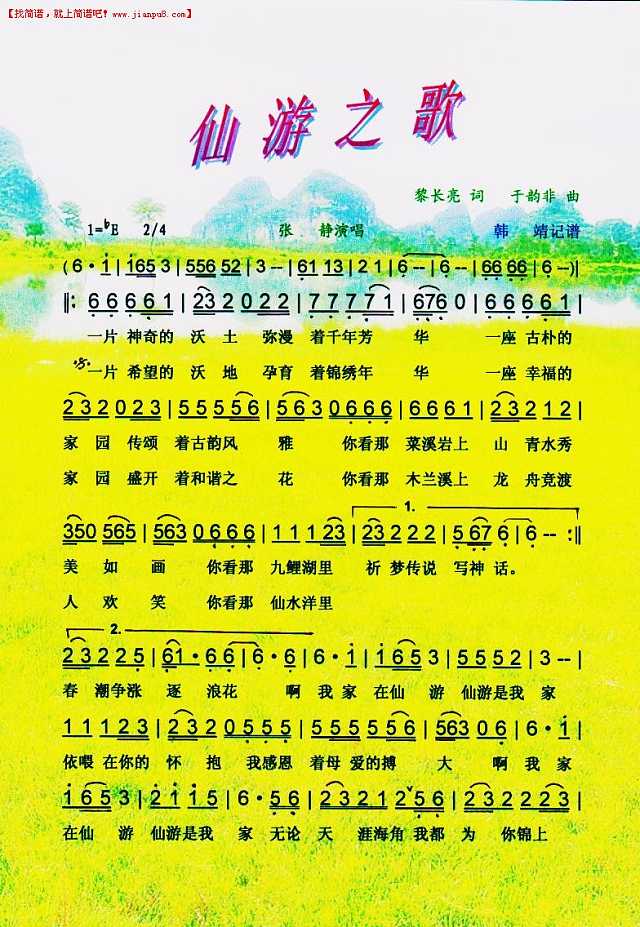 【找简谱，就上简谱吧！www.jianpu8.com】
仙游之歌
黎长亮 词 于韵非 曲
1=ᵇE 2/4 张 静演唱 韩 靖记谱
(6·i | i65 3 | 556 52 | 3 -- | 61 13 | 2 1 | 6 -- | 6 -- | 66 66 | 6 --)|
‖: 6 6 6 6 1 | 2 3 2 0 2 2 | 7 7 7 7 1 | 676 0 | 6 6 6 6 1 |
一片 神奇的 沃 土 弥漫 着千年芳 华 一座 古朴的
一片 希望的 沃 地 孕育 着锦绣年 华 一座 幸福的
2 3 2 0 2 3 | 5 5 5 5 6 | 5 6 3 0 6 6 6 | 6 6 6 1 | 2 3 2 1 2 |
家 园 传颂 着古韵风 雅 你看那 菜溪岩上 山 青水秀
家 园 盛开 着和谐之 花 你看那 木兰溪上 龙 舟竞渡
1.
350 565 | 563 0 6 6 6 | 1 1 1 2 3 | 2 3 2 2 2 | 5 67 6 | 6 -- :‖
美 如 画 你看那 九鲤湖里 祈 梦传说 写神 话。
人 欢 笑 你看那 仙水洋里
2.
2 3 2 2 2 5 | 6 1· 6 6 | 6 · 6 | 6 · i | i 6 5 3 | 2 i i 5 | 3 -- |
春 潮争涨 逐 浪花 啊 我 家 在仙 游 仙游是我 家
1 1 1 1 2 | 3 2 2 0 5 5 5 | 5 5 5 5 6 | 563 0 6 | 6 · i |
依偎 在你的 怀 抱 我感恩 着母 爱的搏 大 啊 我 家
i 6 5 3 | 2 i i 5 | 6 · 5 6 | 2 3 2 1 2 | 2 5 5 6 | 2 3 2 2 2 3 |
在仙 游 仙游是我 家 无论 天 涯海角 我都 为 你锦上